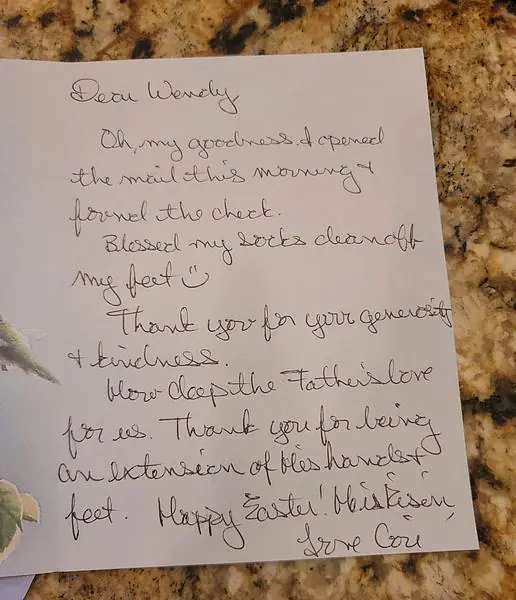 Dear Wendy
Oh, my goodness. I opened
the mail this morning &
found the check.
Blessed my socks clean off
my feet
Thank you for your generosity
& kindness.
How deep the Father's love
for us. Thank you for being
an extension of His hands &
feet. Happy Easter! He is Risen!
Love Cori